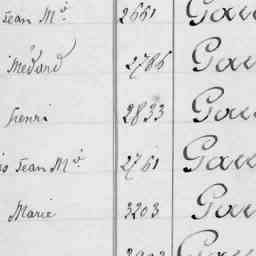 Jean Mie 2661 Gau
Médard 2786 Gau
henri 2833 Gau
Jean Mie 2761 Gau
Marie 3203 Gau